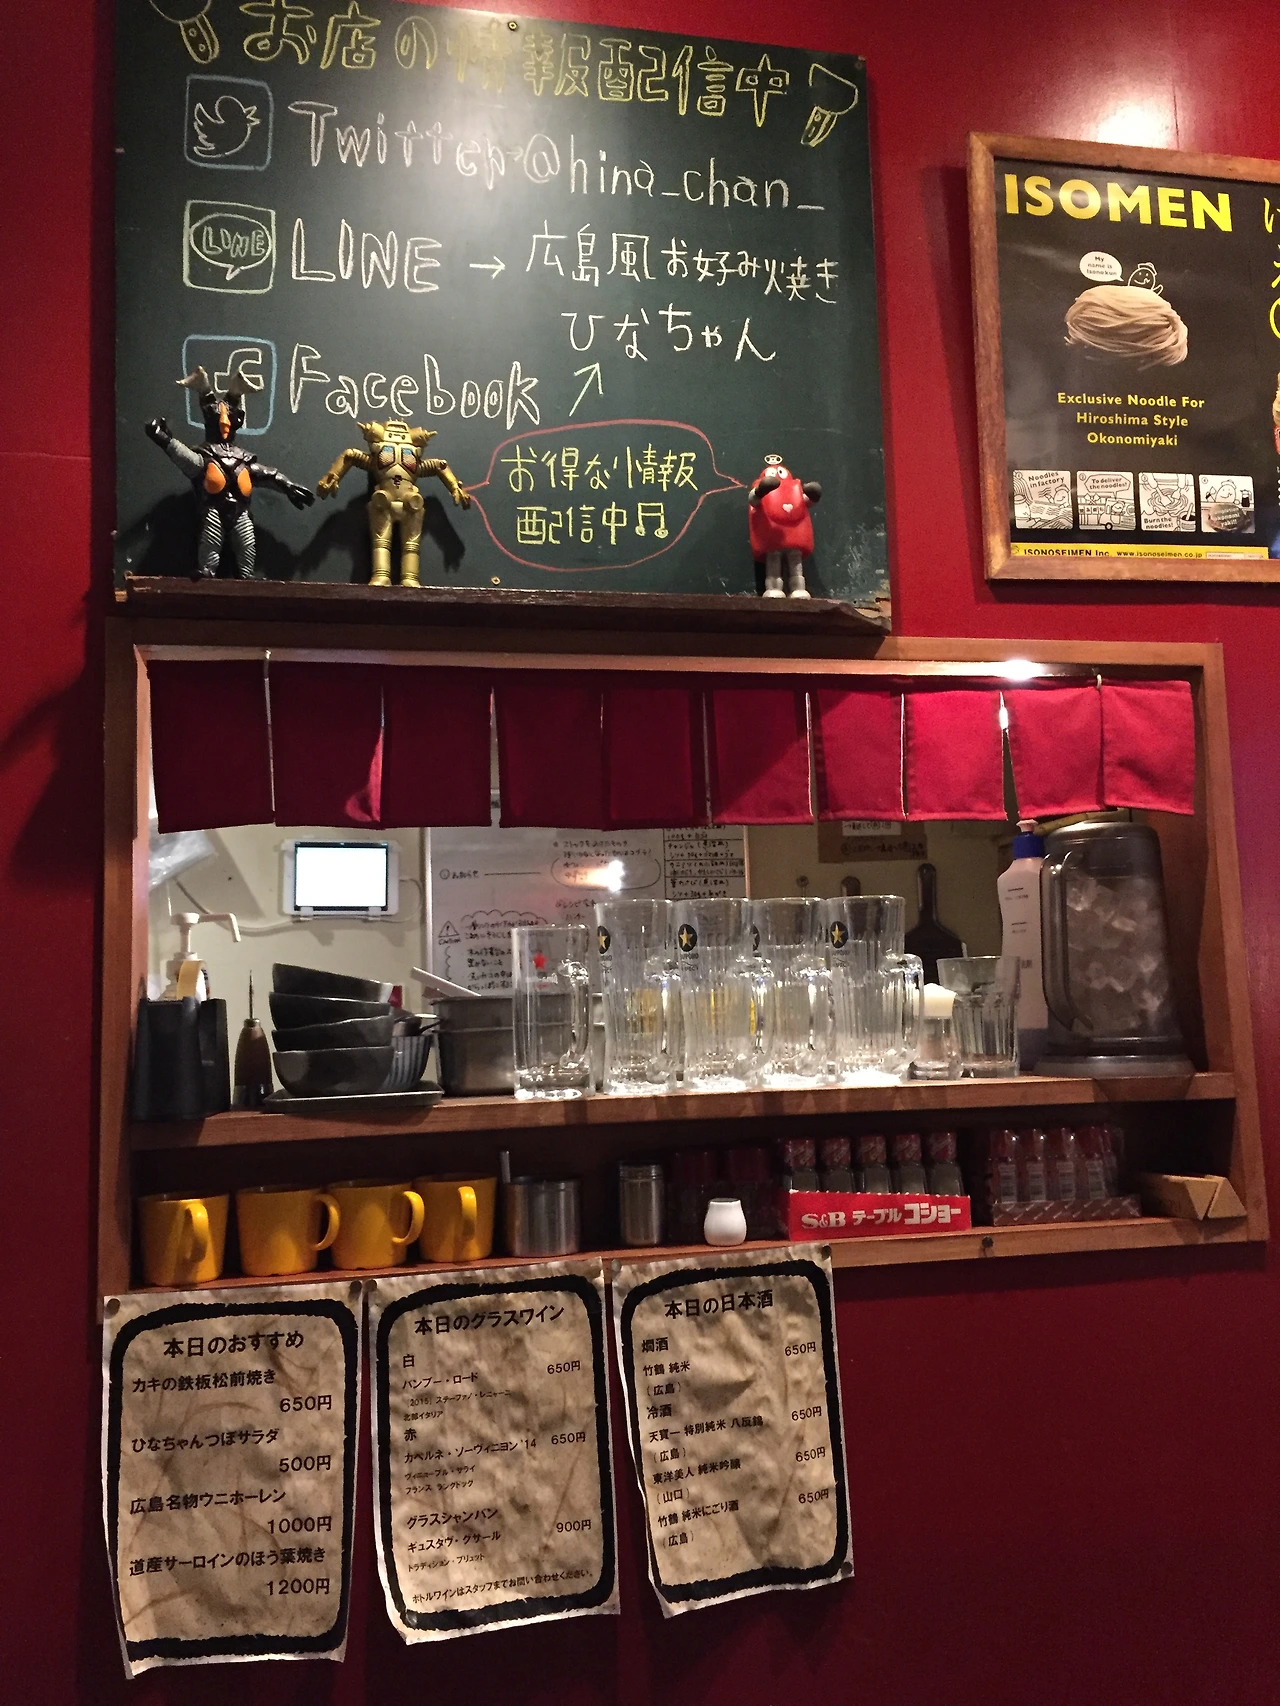 お店の情報配信中
Twitter→@hina_chan_
LINE
LINE → 広島風お好み焼き
ひなちゃん
f Facebook ↗
お得な情報
配信中♫
ISOMEN
My name is Isonokun
Exclusive Noodle For
Hiroshima Style
Okonomiyaki
Noodles in factory
To deliver the noodles!
Burn the noodles!
ISONOSEIMEN Inc. www.isonoseimen.co.jp
S&B テーブルコショー
本日のおすすめ
カキの鉄板松前焼き
650円
ひなちゃんつぼサラダ
500円
広島名物ウニホーレン
1000円
道産サーロインのほう葉焼き
1200円
本日のグラスワイン
白
バンブー・ロード 650円
「2015」ステーファノ・レニャーニ
北部イタリア
赤
カベルネ・ソーヴィニヨン '14 650円
ヴィニョーブル・サライ
フランス ラングドック
グラスシャンパン
ギュスタヴ・グサール 900円
トラディション・ブリュット
ボトルワインはスタッフまでお問い合わせください。
本日の日本酒
燗酒
竹鶴 純米 650円
(広島)
冷酒
天寶一 特別純米 八反錦 650円
(広島)
東洋美人 純米吟醸 650円
(山口)
竹鶴 純米にごり酒 650円
(広島)